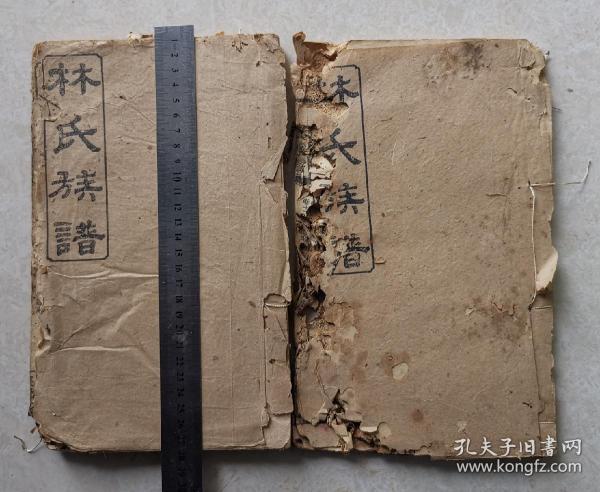 林氏族譜
林氏族譜
1 2 3 4 5 6 7 8 9 10 11 12 13 14 15 16 17 18 19 20 21 22 23 24 25 26
孔夫子旧書网
www.kongfz.com